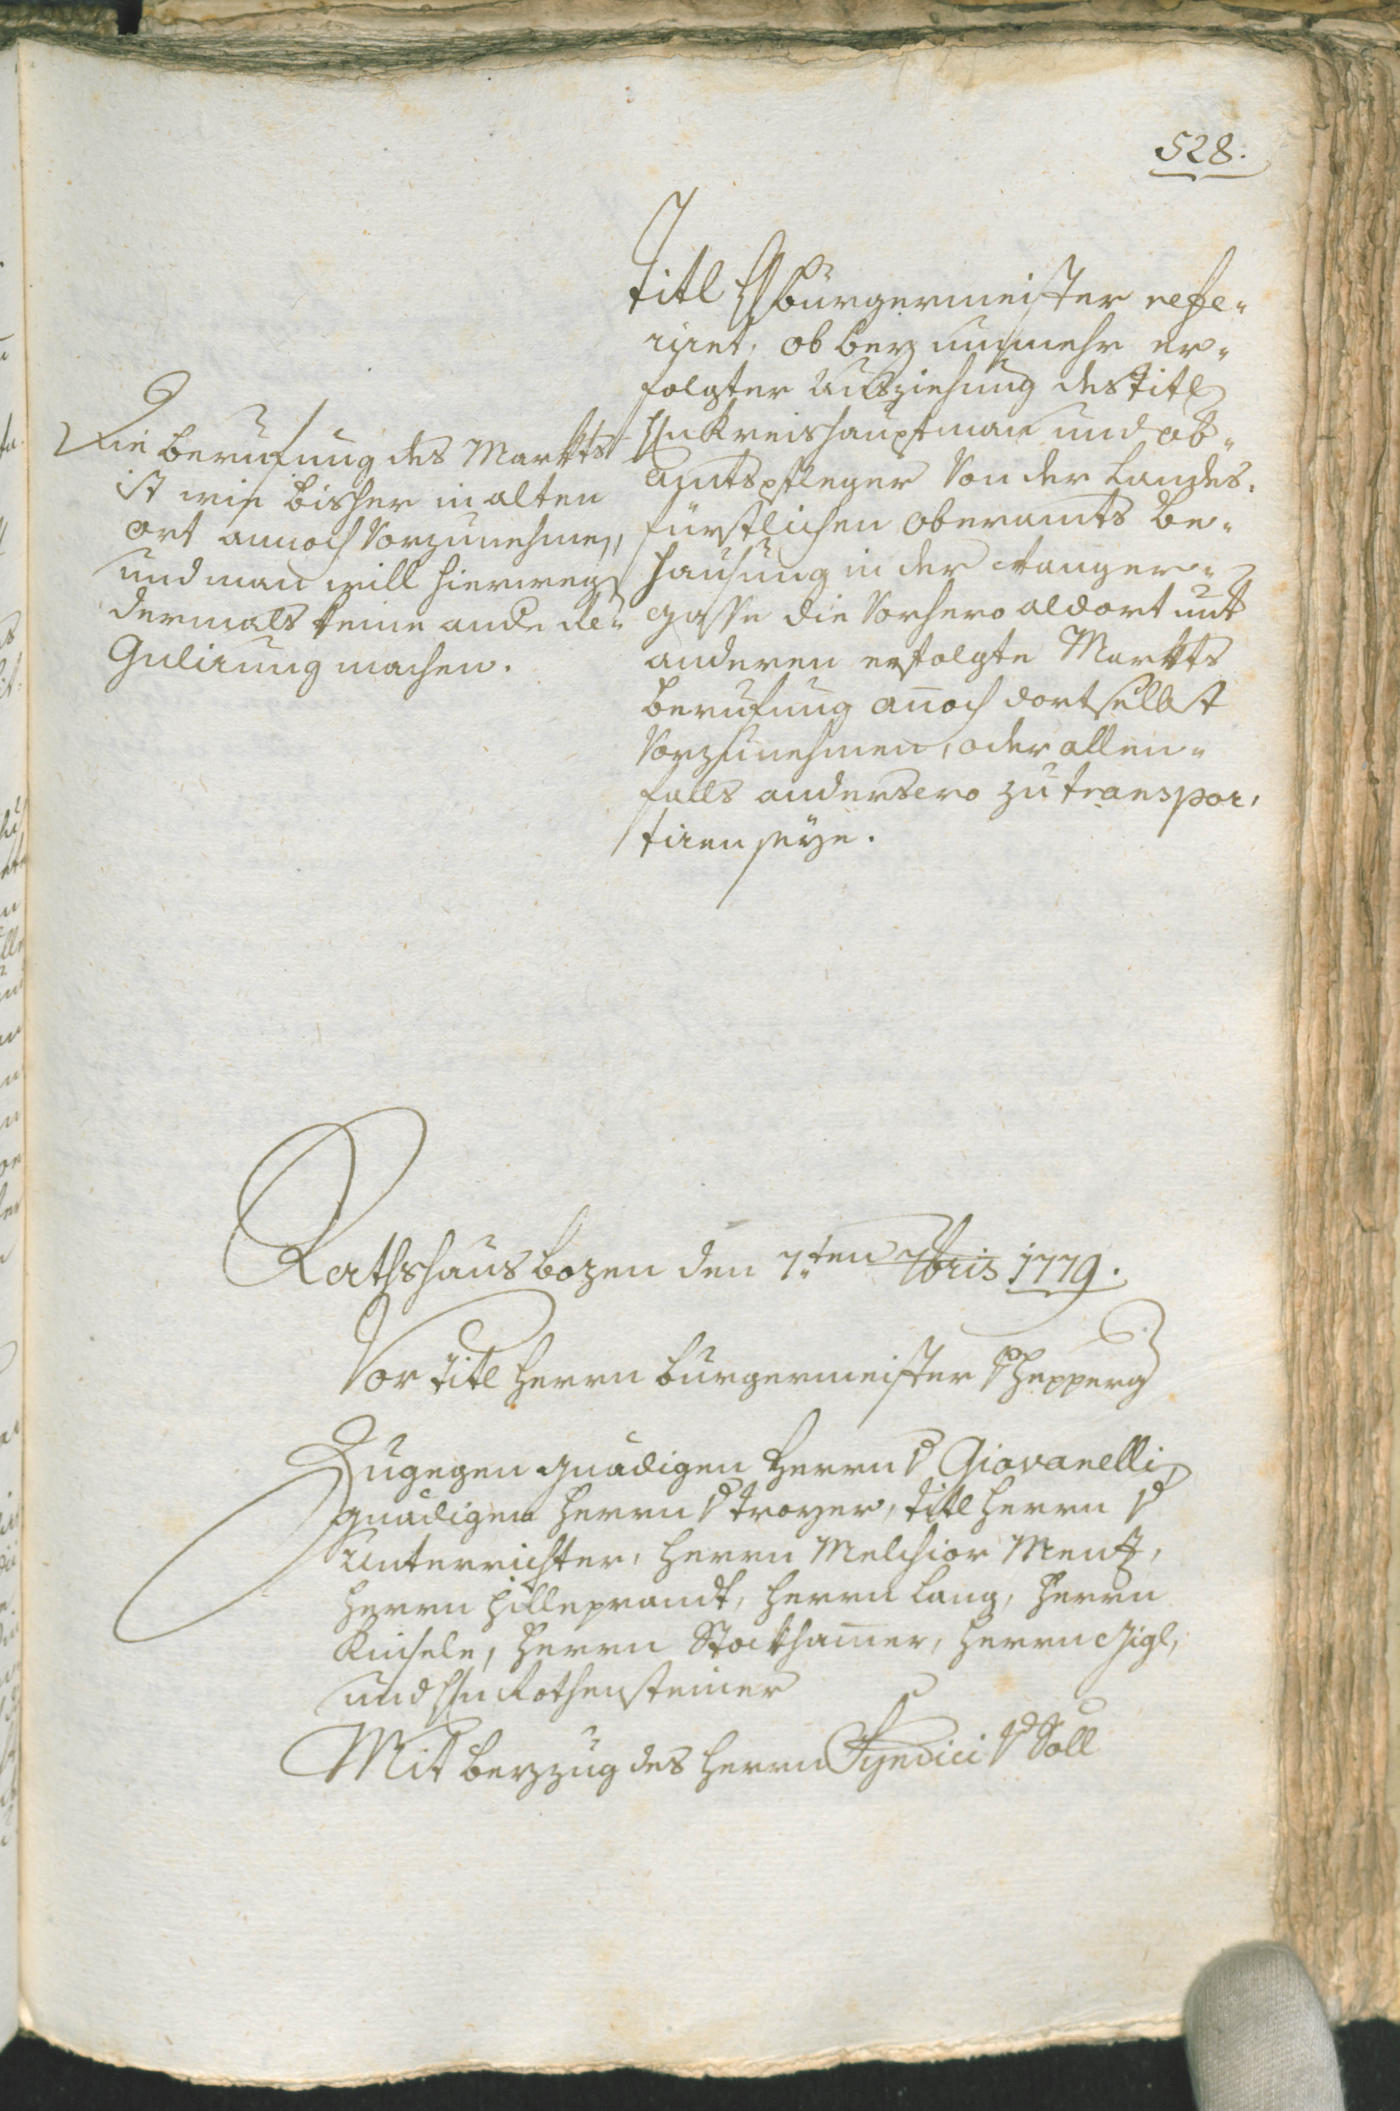 528.
Titl H burgermeister refe-
riret, ob bey nunmehr er-
folgter Ausziehung des titl
Hn Kreishauptman und ob-
Amtspfleger von der Landes-
fürstlichen oberamts be-
hausung in der Wanger-
gasse die vorhero aldort mit
anderen erfolgte Markts
berufung anoch dortselbst
vorzunehmen, oder allen-
falls andersero zu transpor-
tiren seye.
Die berufung des Markts
ist wie bisher in alten
ort annoch vorzunehmen,
und man will hierwegs
dermals keine ande Re-
gulirung machen.
Rathshaus bozen den 7.ten 7bris 1779.
Vor titl herrn burgermeister v Hepperg
Zugegen gnädigen Herrn v Giovanelli,
gnädigen herrn v troyer, titl herrn v
Unterrichter, herrn Melchior Menz,
herrn hilleprandt, herrn lang, herrn
Kinsele, herrn Stockhamer, herrn Gigl,
und Hn Rothensteiner
Mit beyzug des herrn Syndici v Söll